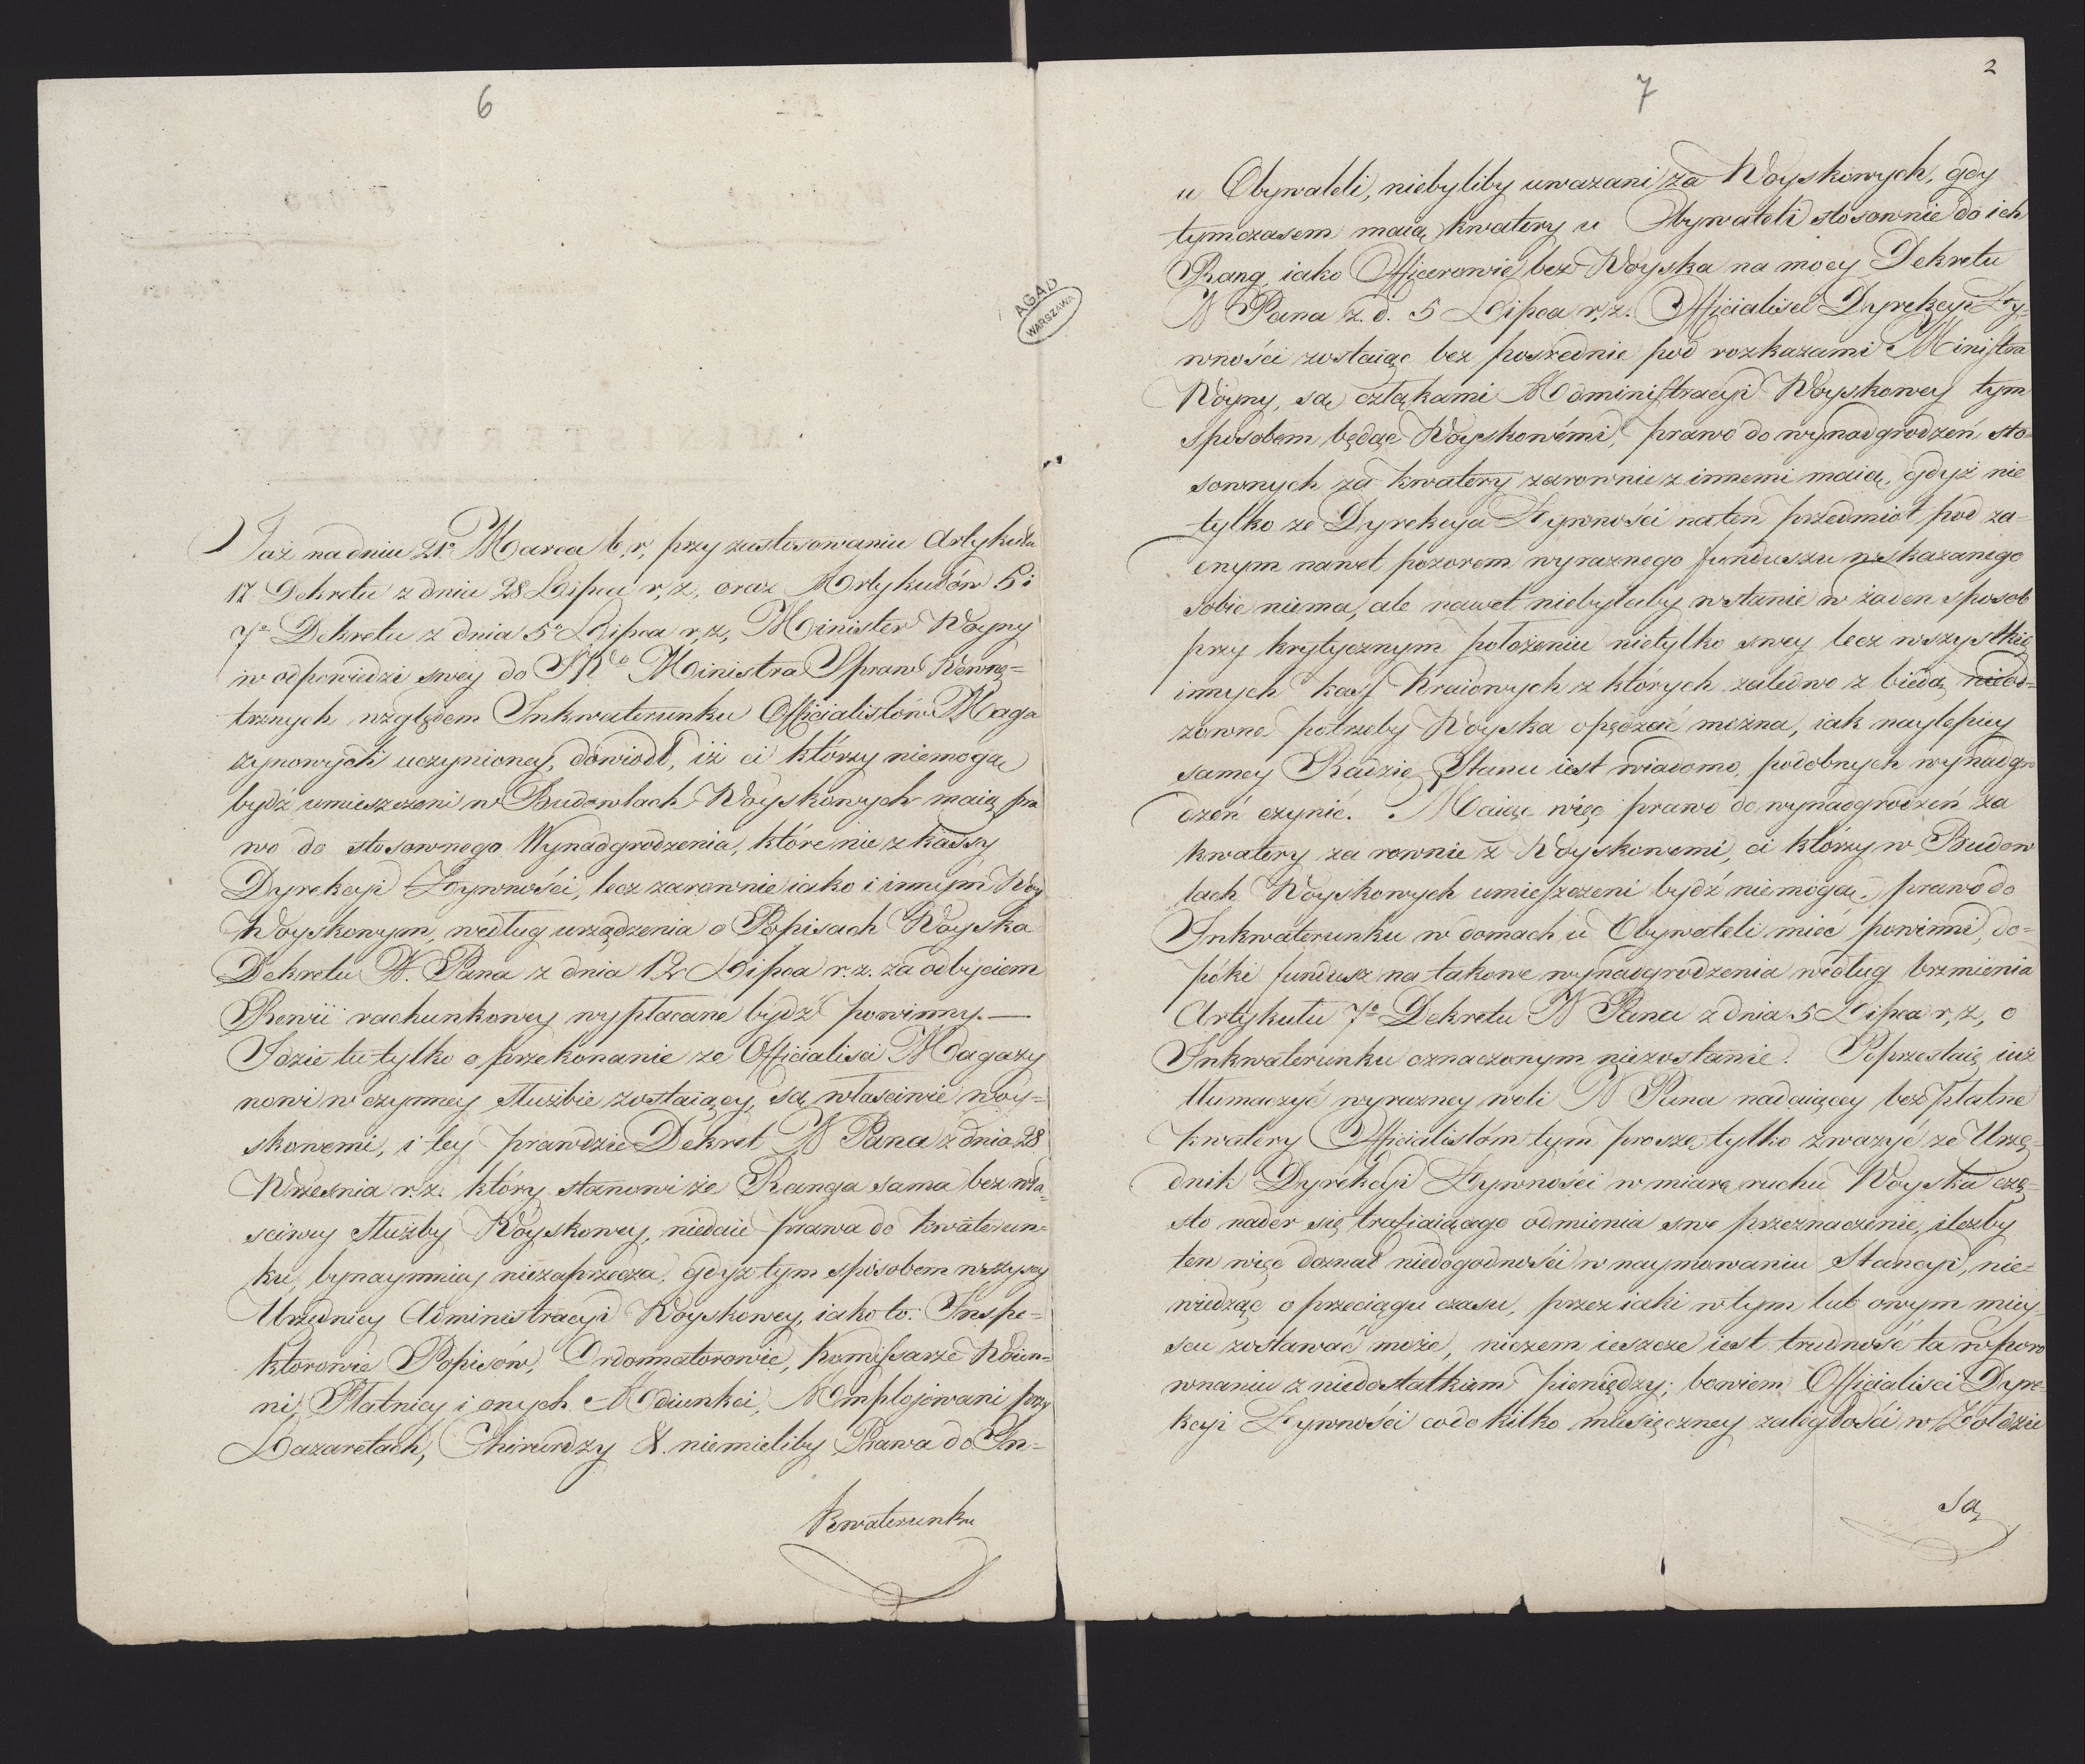 6
Już na dniu 21º Marca b, r, przy zastosowaniu Artykułu
17 Dekretu z dniu 28 Lipca r, z, oraz Artykułów 5 i
7º Dekretu z dnia 5º Lipca r, z, Minister Woyny
w odpowiedzi swey do JWo Ministra Spraw Wewnę=
trznych względem Inkwaterunku Officialistów Maga
zynowych uczynioney, dowiodł, iż ci którzy niemogą
bydź umieszczeni w Budowlach Woyskowych maią pra
wo do stosownego Wynadgrodzenia, które nie z kassy
Dyrekcyi Żywności, lecz zarownie iako i innym Woy
Woyskowym, według urządzenia o Popisach Woyska
Dekretu N. Pana z dnia 12 Lipca r. z. za odbyciem
Rewii rachunkowey wypłacane bydź powinny. —
Idzie tu tylko o przekonanie ze Officialisci Magazy
nowi w czynney służbie zostaiący, są własciwie woy=
skowemi, i tey prawdzie Dekret N Pana z dnia 28
Wrzesnia r. z. który stanowi że Ranga sama bez wła=
sciwey służby Woyskowey, niedaie prawa do kwaterun=
ku, bynaymniey niezaprzecza, gdyż tym sposobem wszyscy
Urzędnicy Administracyi Woyskowey, iako to: Inspe=
ktorowie Popisów, Ordonnatorowie, Komissarze Woien=
ni, Płatnicy i onych Adiunkci, Employowani przy
Lazaretach, Chirurdzy &. niemieliby Prawa do In=
kwaterunku
AGAD
WARSZAWA
7
2
u Obywateli, niebyliby uwazani za Woyskowych, gdy
tymczasem maią kwatery u Obywateli stosownie do ich
Rang, iako Officerowie bez Woyska na mocy Dekretu
N Pana z. d. 5 Lipca r, z. Officialisci Dyrekcyi Ży=
wności zostaiąc bez posrednie pod rozkazami Ministra
Woyny, są cząłkami Administracyi Woyskowey tym
sposobem będąc Woyskowémi, prawo do wynadgrodzeń sto=
sownych za kwatery zarownie z innemi maią, gdyż nie
tylko ze Dyrekcya Żywności na ten przedmiot pod za=
cnym nawet pozorem wyraznego funduszu wskazanego
sobie niema, ale nawet niebyłaby w stanie w żaden sposob
przy krytycznym położeniu nietylko swey lecz wszystkich
innych kass Kraiowych z których zaledwo z biedą nieod=
zowne potrzeby Woyska opędzać można, iak naylepiey
samey Radzie Stanu iest wiadomo, podobnych wynadgro
dzeń czynić. Maiąc więc prawo do wynadgrodzeń za
kwatery za rownie z Woyskowemi, ci którzy w Budow
lach Woyskowych umieszczeni bydź niemogą, prawo do
Inkwaterunku w domach u Obywateli mieć powinni, do=
póki fundusz na takowe wynadgrodzenia według brzmienia
Artykułu 7º Dekretu N Pana z dnia 5 Lipca r, z, o
Inkwaterunku oznaczonym niezostanie. Poprzestaię iuż
tłumaczyć wyrazney woli N Pana nadaiącey bezpłatne
kwatery Officialistóm tym, proszę tylko zwazyć ze Urzę=
dnik Dyrekcyi Żywności w miarę ruchu Woyska czę=
sto nader się trafiaiącego odmienia swe przeznaczenie, ileżby
ten więc doznał niedogodności w naymowaniu Stancyi, nie=
wiedząc o przeciągu czasu, przez iaki w tym lub owym miey=
scu zostawać może, niczem ieszcze iest trudność ta w poro
wnaniu z niedostatkiem pieniędzy; bowiem Officialisci Dyre=
kcyi Żywności co do kilko miesięczney zaległości w Żołdzie
są